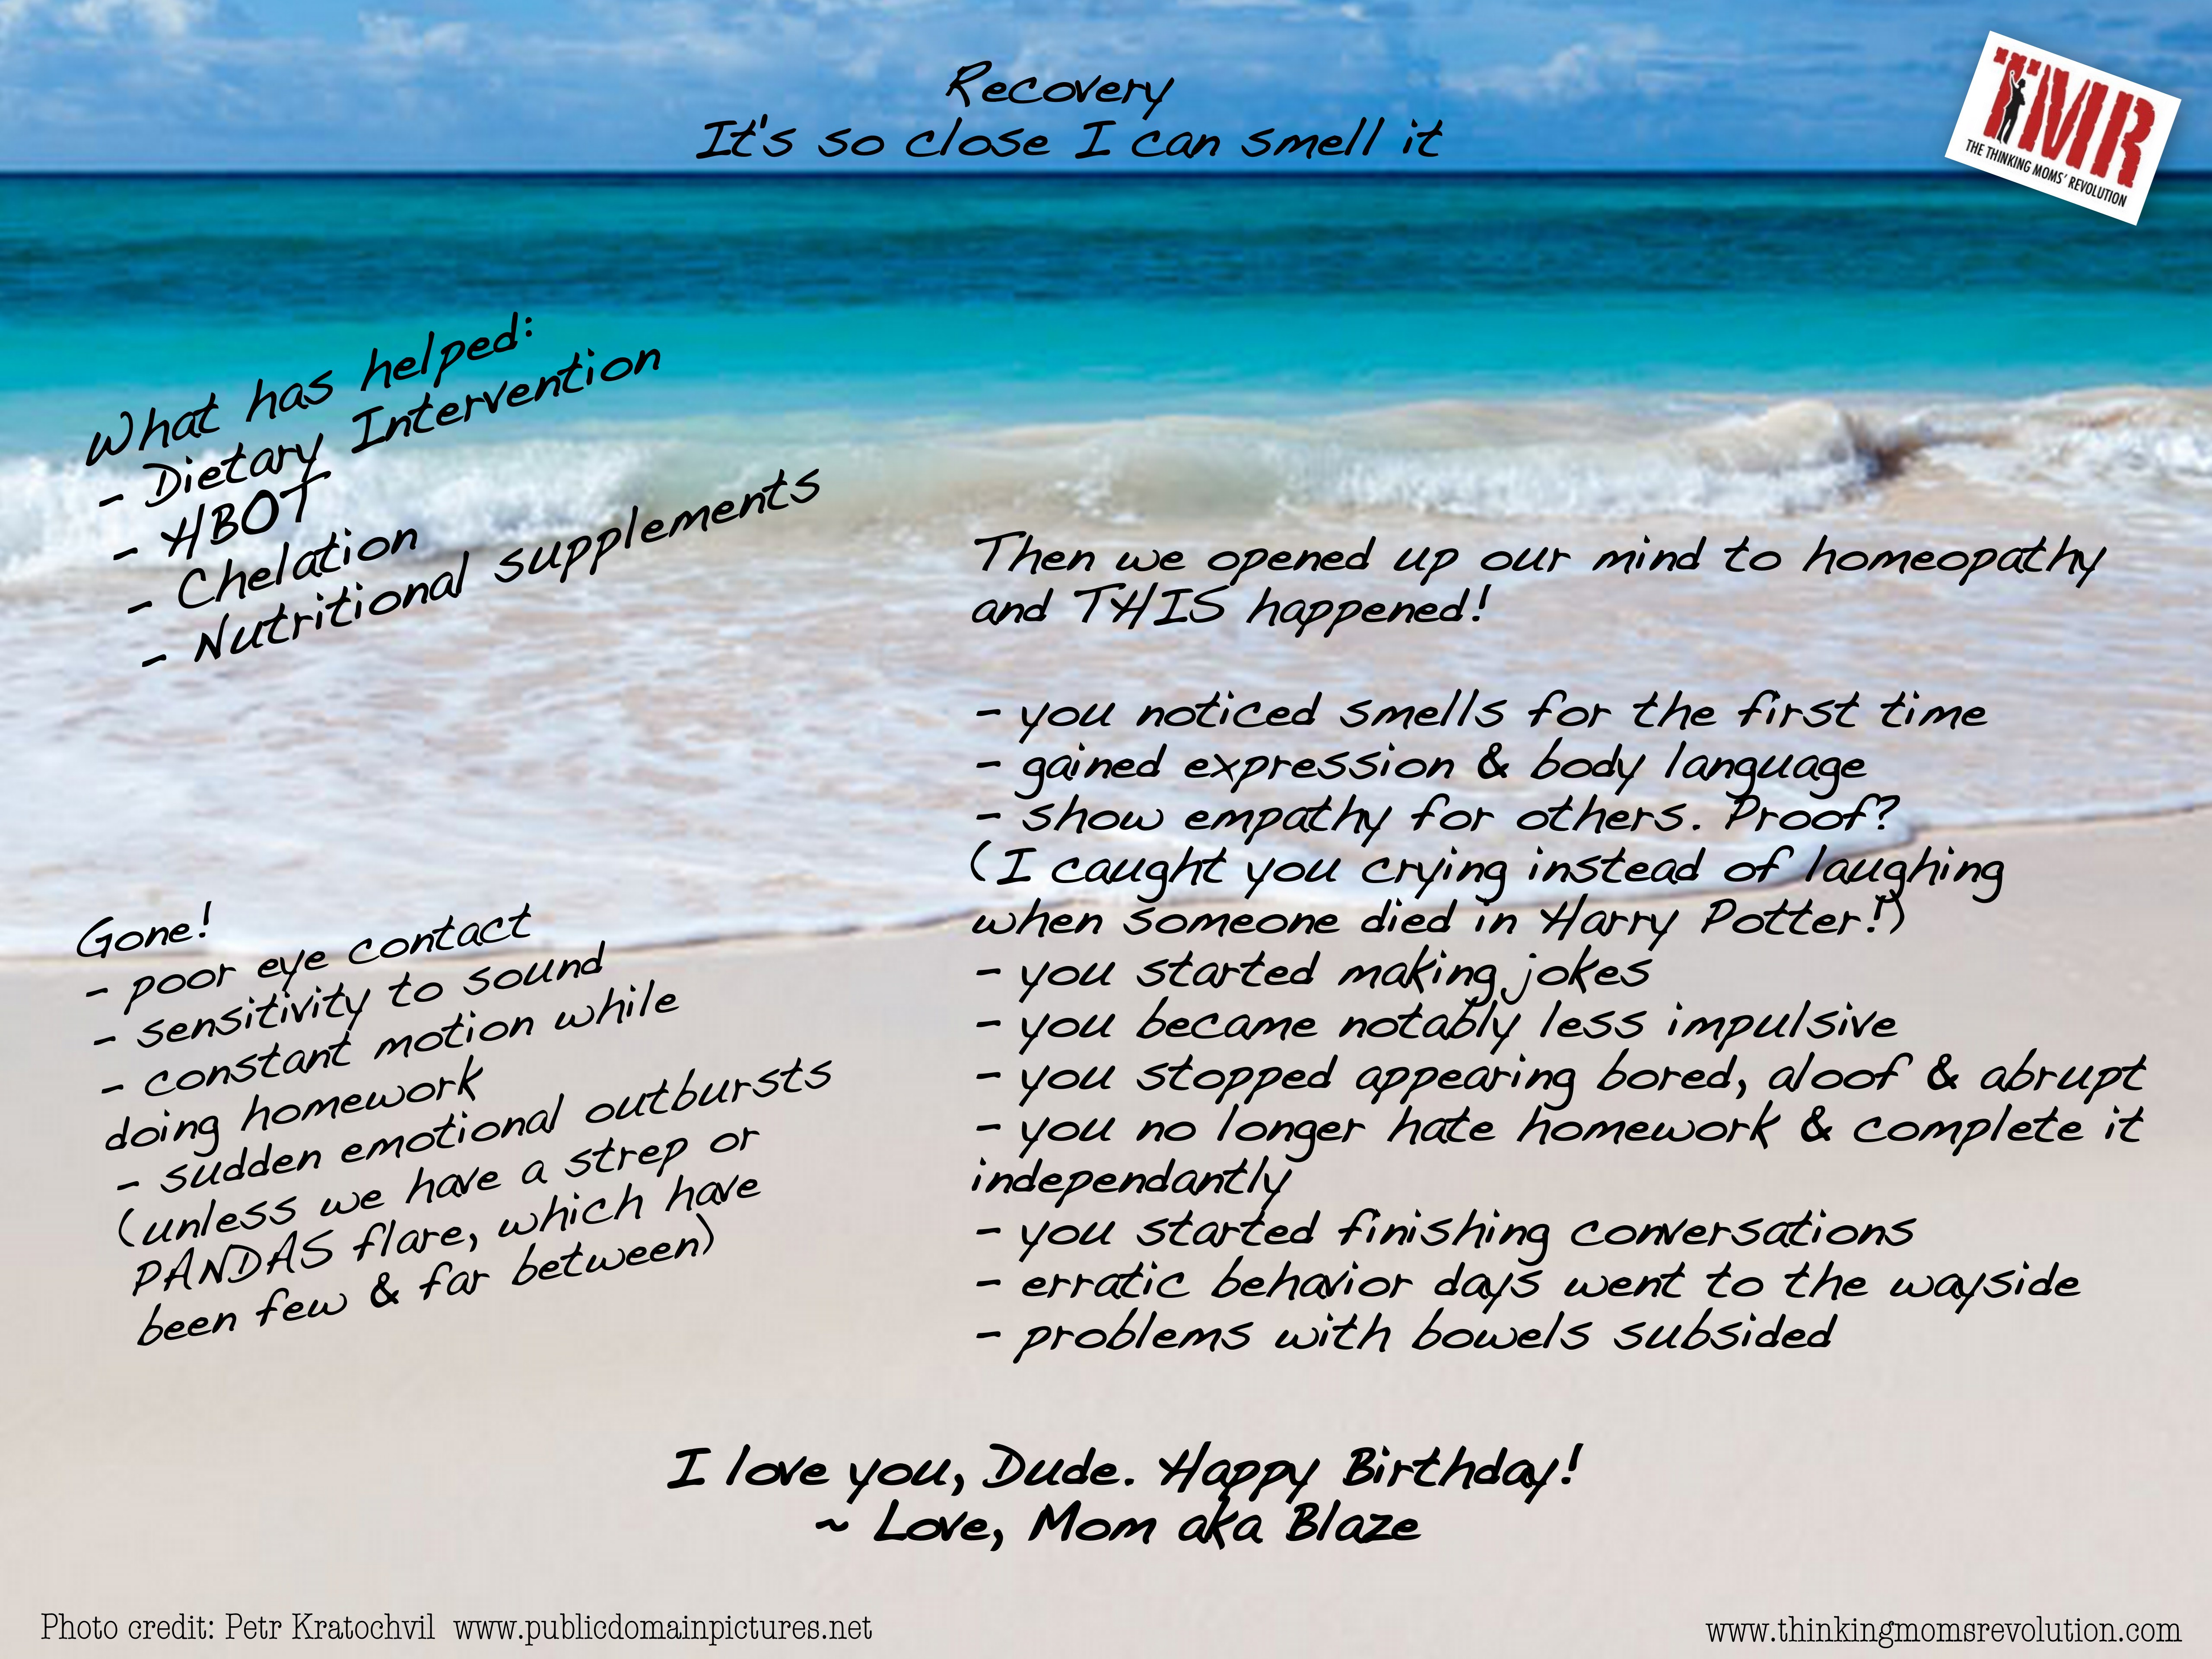 Recovery
It's so close I can smell it
TMR
THE THINKING MOMS' REVOLUTION
What has helped:
- Dietary Intervention
- HBOT
- Chelation
- Nutritional supplements
Then we opened up our mind to homeopathy
and THIS happened!
- you noticed smells for the first time
- gained expression & body language
- show empathy for others. Proof?
(I caught you crying instead of laughing
when someone died in Harry Potter!)
- you started making jokes
- you became notably less impulsive
- you stopped appearing bored, aloof & abrupt
- you no longer hate homework & complete it
independantly
- you started finishing conversations
- erratic behavior days went to the wayside
- problems with bowels subsided
Gone!
- poor eye contact
- sensitivity to sound
- constant motion while
doing homework
- sudden emotional outbursts
(unless we have a strep or
PANDAS flare, which have
been few & far between)
I love you, Dude. Happy Birthday!
~ Love, Mom aka Blaze
Photo credit: Petr Kratochvil www.publicdomainpictures.net
www.thinkingmomsrevolution.com